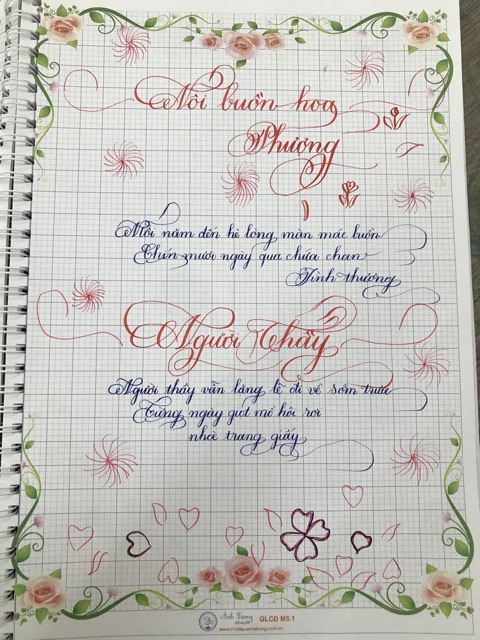 Nỗi buồn hoa
Phượng
Mỗi năm đến hè lòng man mác buồn
Chín mươi ngày qua chứa chan
Tình thương
Người Thầy
Người thầy vẫn lặng lẽ đi về sớm trưa
Từng ngày giọt mồ hôi rơi
nhoè trang giấy
Ánh Dương
GLCĐ M5.1